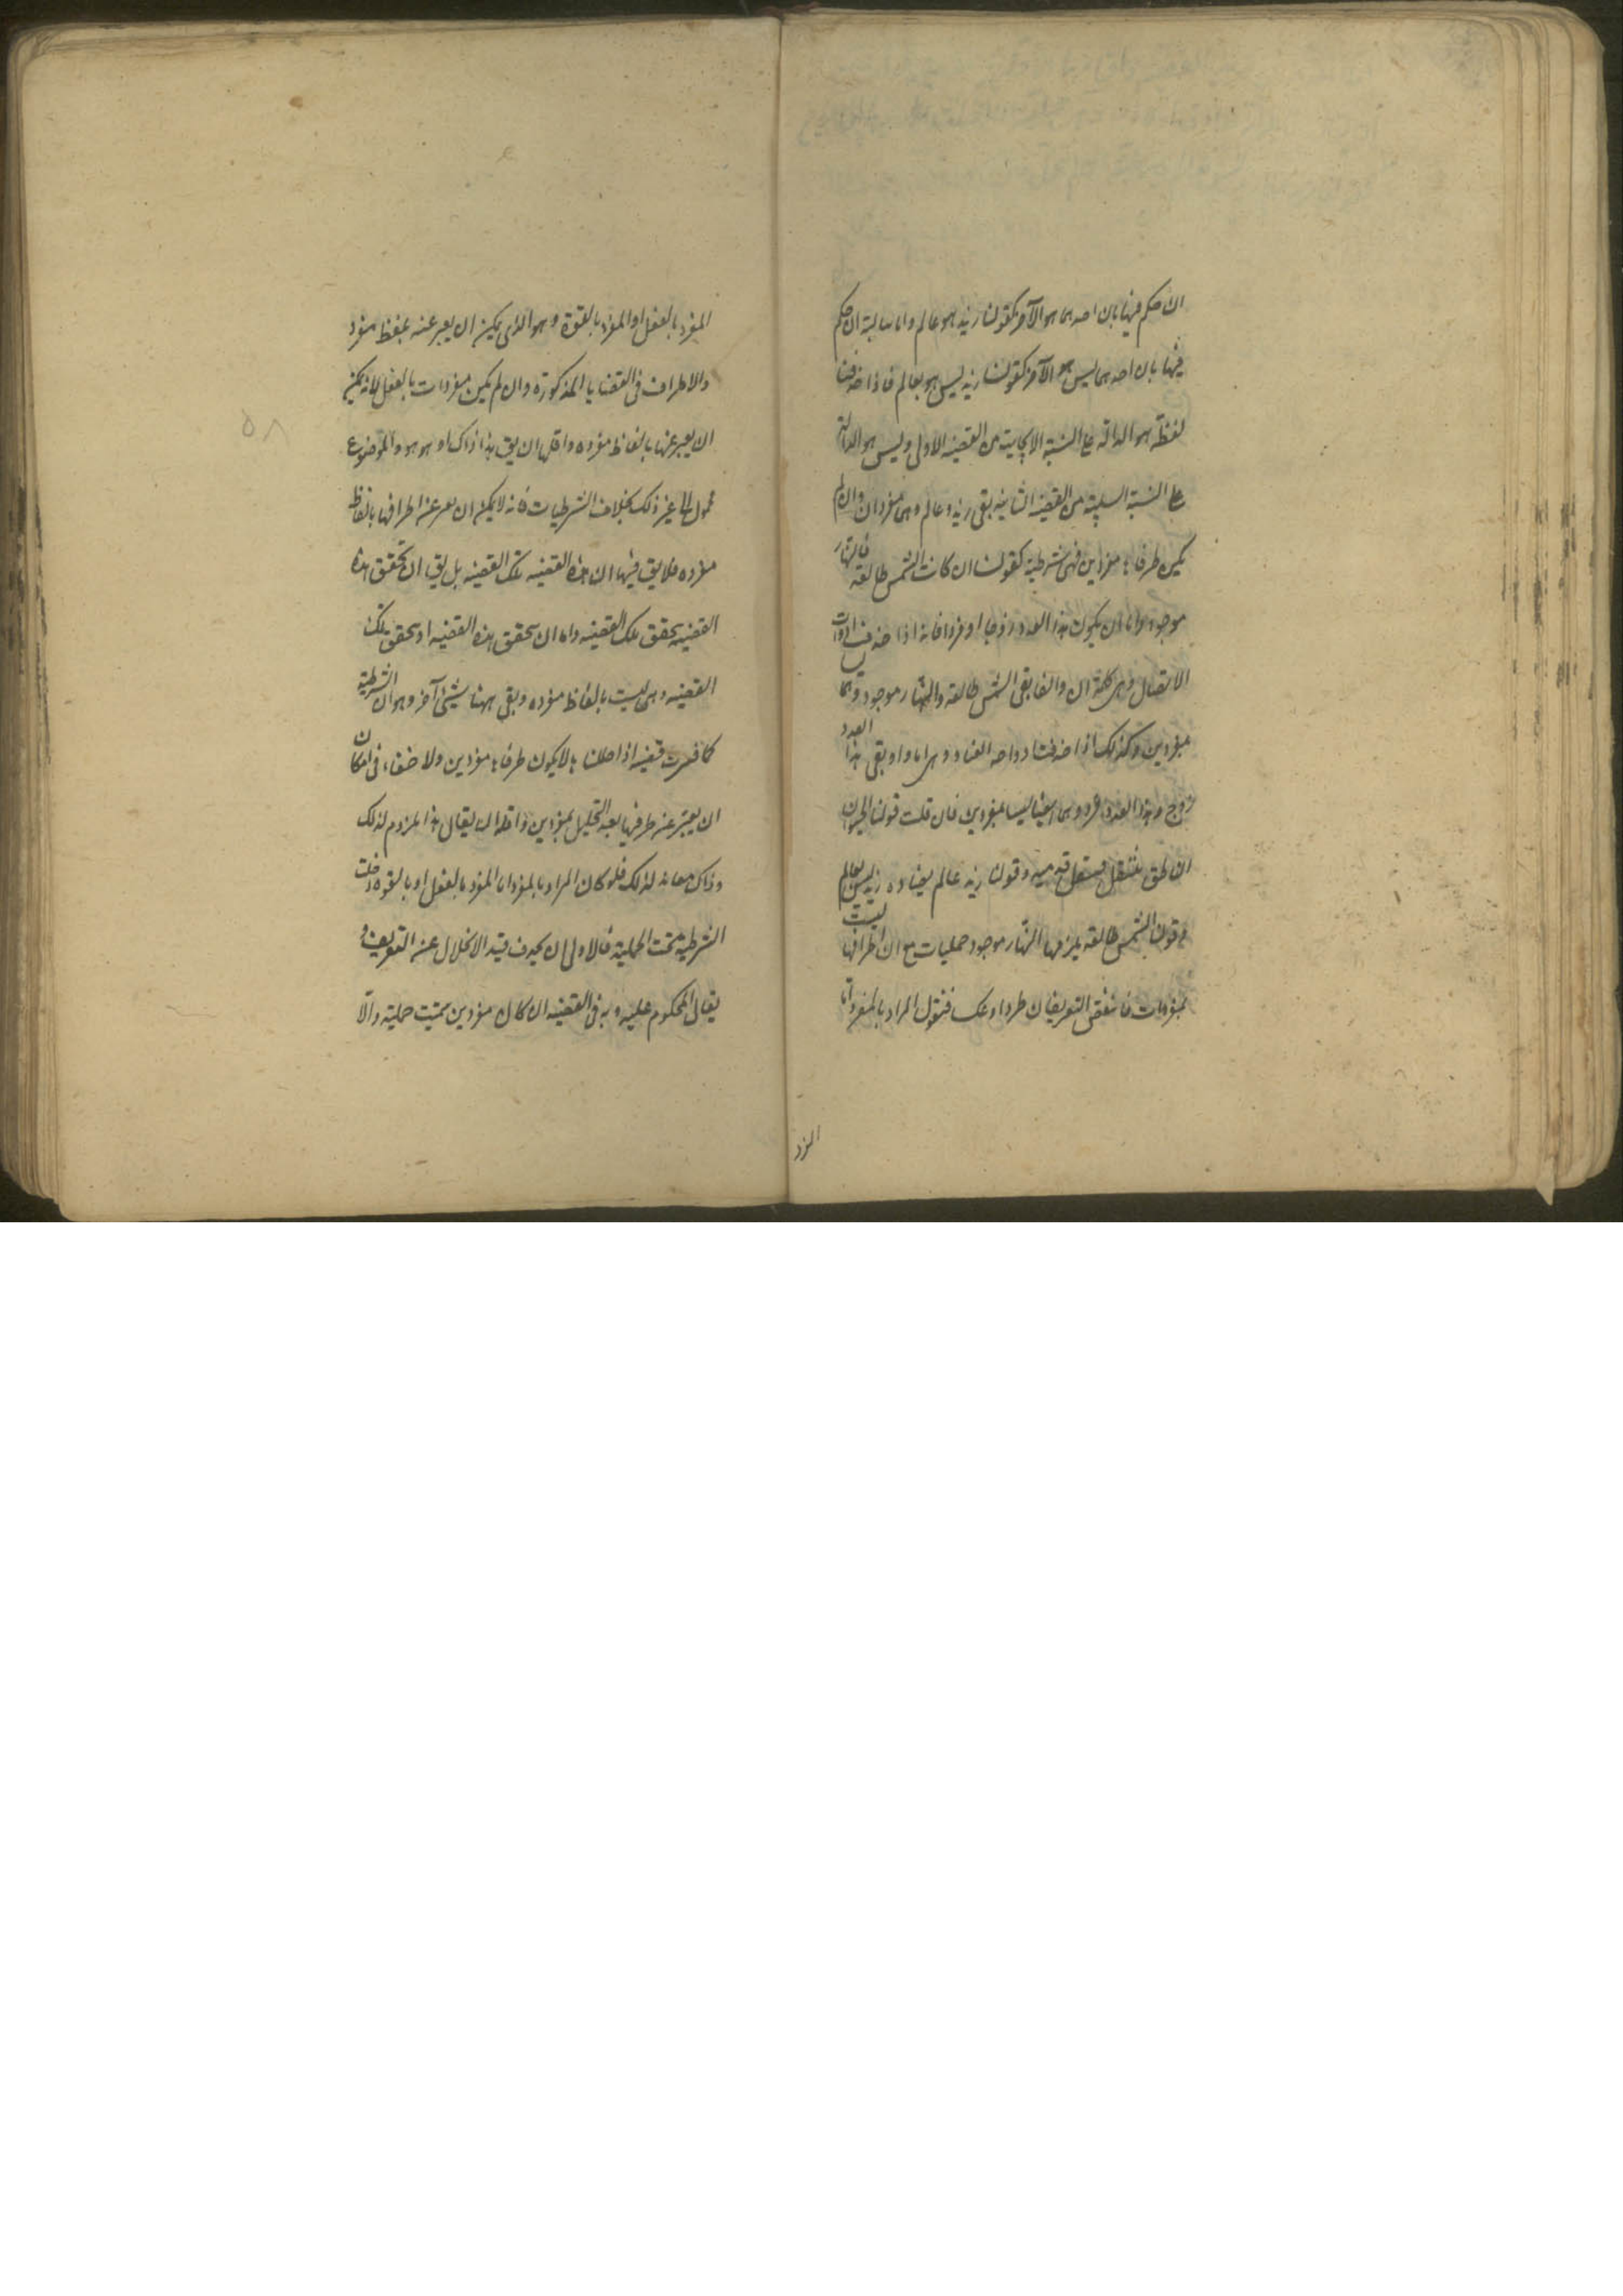 ان حكم فيها بان احدهما هو الآخر كقولنا زيد هو عالم واما سالبة ان حكم
فيها بان احدهما ليس هو الآخر كقولنا زيد ليس هو بعالم فاذا حذفنا
لفظة هو الدالة على النسبة الايجابية من القضية الاولى وليس هو الدالة
على النسبة السلبية من القضية الثانية بقى زيد وعالم وهما مفردان وان لم
يكن طرفاها مفردين فهى شرطية كقولنا ان كانت الشمس طالعة فالنهار
موجود واما ان يكون هذا العدد زوجا او فردا فانه اذا حذفت ادوات
الاتصال وهى كلمة ان والفا بقى الشمس طالعة والنهار موجود وهما ليسا
بمفردين وكذلك اذا حذفت ادوات العناد وهى اما واو بقى هذا العدد
زوج وهذا العدد فرد وهما ايضا ليسا بمفردين فان قلت قولنا الحيوان
الناطق ينتقل بنقل قدميه وقولنا زيد عالم يضاده زيد ليس بعالم
وقولنا الشمس طالعة يلزمها النهار موجود حمليات مع ان اطرافها ليست
بمفردات فانتقض التعريفان طردا وعكسا فنقول المراد بالمفرد اما
المفرد
المفرد بالفعل او المفرد بالقوة وهو الذى يمكن ان يعبر عنه بلفظ مفرد
والاطراف فى القضايا المذكورة وان لم يكن مفردات بالفعل الا انه يمكن
ان يعبر عنها بالفاظ مفرده واقلها ان يق هذا ذاك او هو هو والموضوع
محمول الى غير ذلك بخلاف الشرطيات فانه لا يمكن ان يعبر عن اطرافها بالفاظ
مفرده فلا يق فيها ان هذه القضيه تلك القضيه بل يق ان تحقق هذه
القضيه تحقق تلك القضيه واما ان تحقق هذه القضيه او تحقق تلك
القضيه وهى ليست بالفاظ مفرده وبقى ههنا شيئ آخر وهو ان الشرطية
كما فسرت قضية اذا حللناها لا يكون طرفاها مفردين ولا خفاء فى امكان
ان يعبر عن طرفيها بعد التحليل بمفردين واقله ان يقال هذا ملزوم لذلك
وذاك معاند لذلك فلو كان المراد بالمفرد اما المفرد بالفعل او بالقوه دخلت
الشرطية تحت الحملية فالاولى ان يحذف قيد الانحلال عن التعريف و
يقال المحكوم عليه وبه فى القضيه ان كان مفردين سميت حملية والّا
٥٨